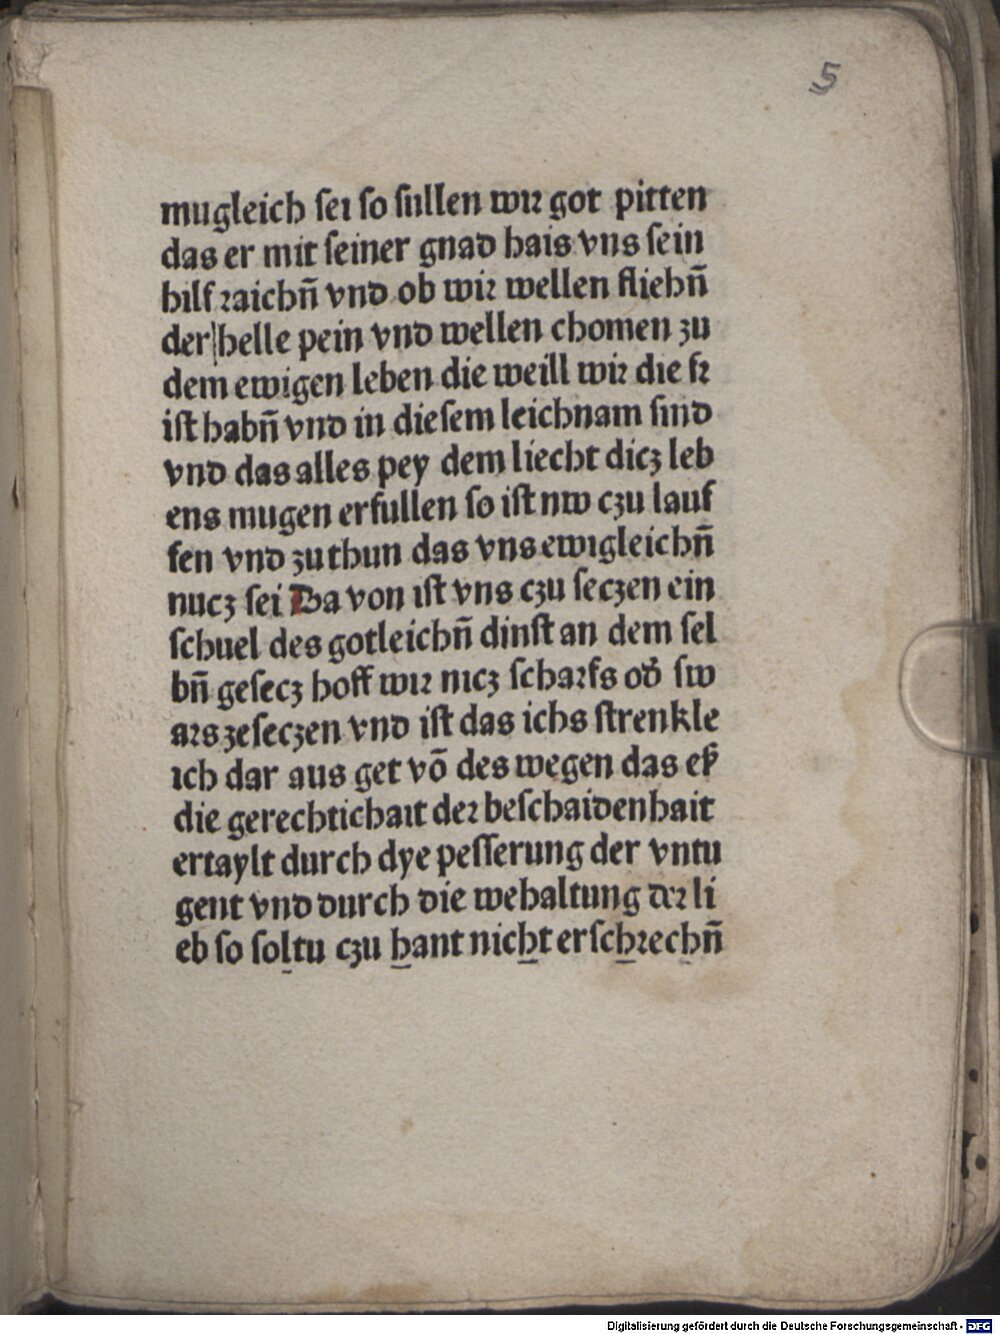 5
mugleich sei so sullen wir got pitten
das er mit seiner gnad hais vns sein
hilf raichn̄ vnd ob wir wellen fliehn̄
der helle pein vnd wellen chomen zu
dem ewigen leben die weill wir die fr
ist habn̄ vnd in diesem leichnam sind
vnd das alles pey dem liecht dicz leb
ens mugen erfullen so ist nw czu lauf
fen vnd zu thun das vns ewigleichn̄
nucz sei Da von ist vns czu seczen ein
schuel des gotleichn̄ dinst an dem sel
bn̄ gesecz hoff wir nicz scharfs od̄ sw
ars zeseczen vnd ist das ichs strenkle
ich dar aus get vō des wegen das er̄
die gerechtichait der beschaidenhait
ertaylt durch dye pesserung der vntu
gent vnd durch die wehaltung der li
eb so soltu czu hant nicht erschrechn̄
Digitalisierung gefördert durch die Deutsche Forschungsgemeinschaft - DFG